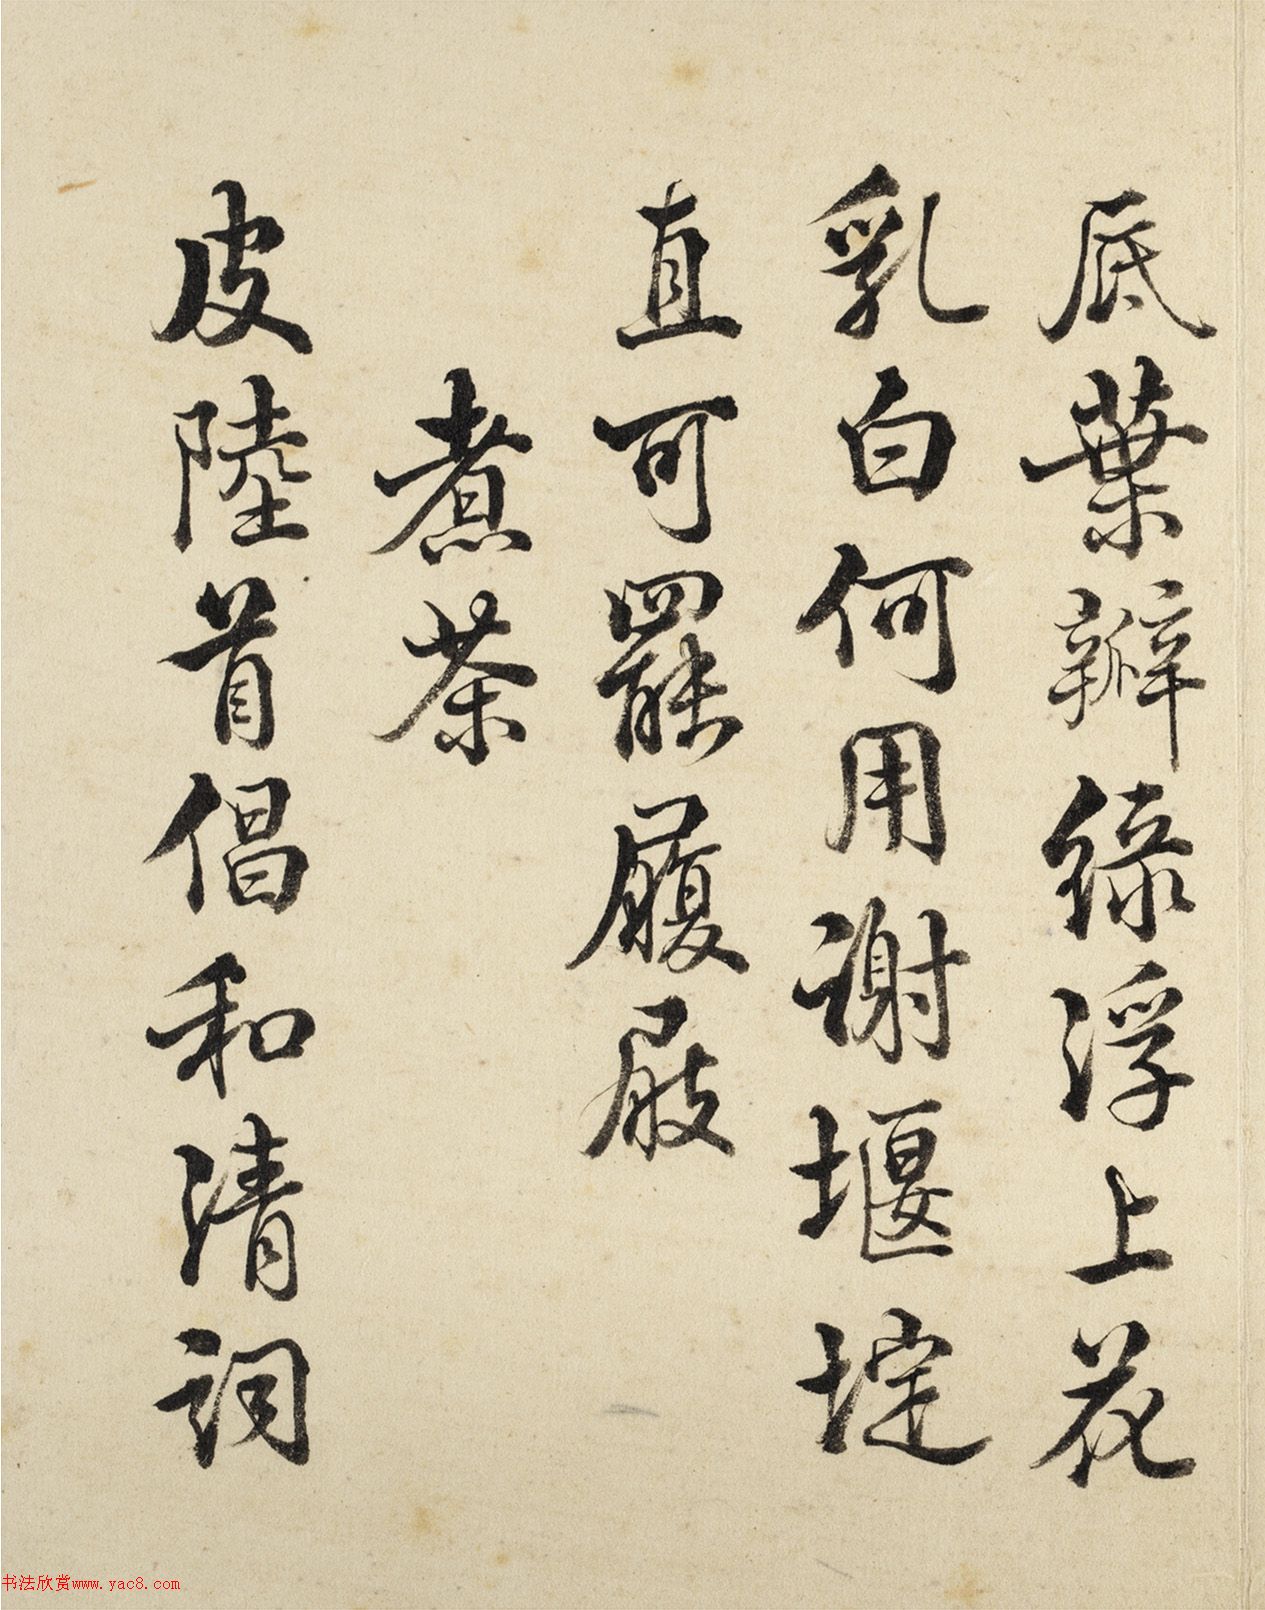 底葉瓣綠浮上花
乳白何用謝堰埞
直可罷履屐
煮茶
皮陸首倡和清詞
书法欣赏www.yac8.com